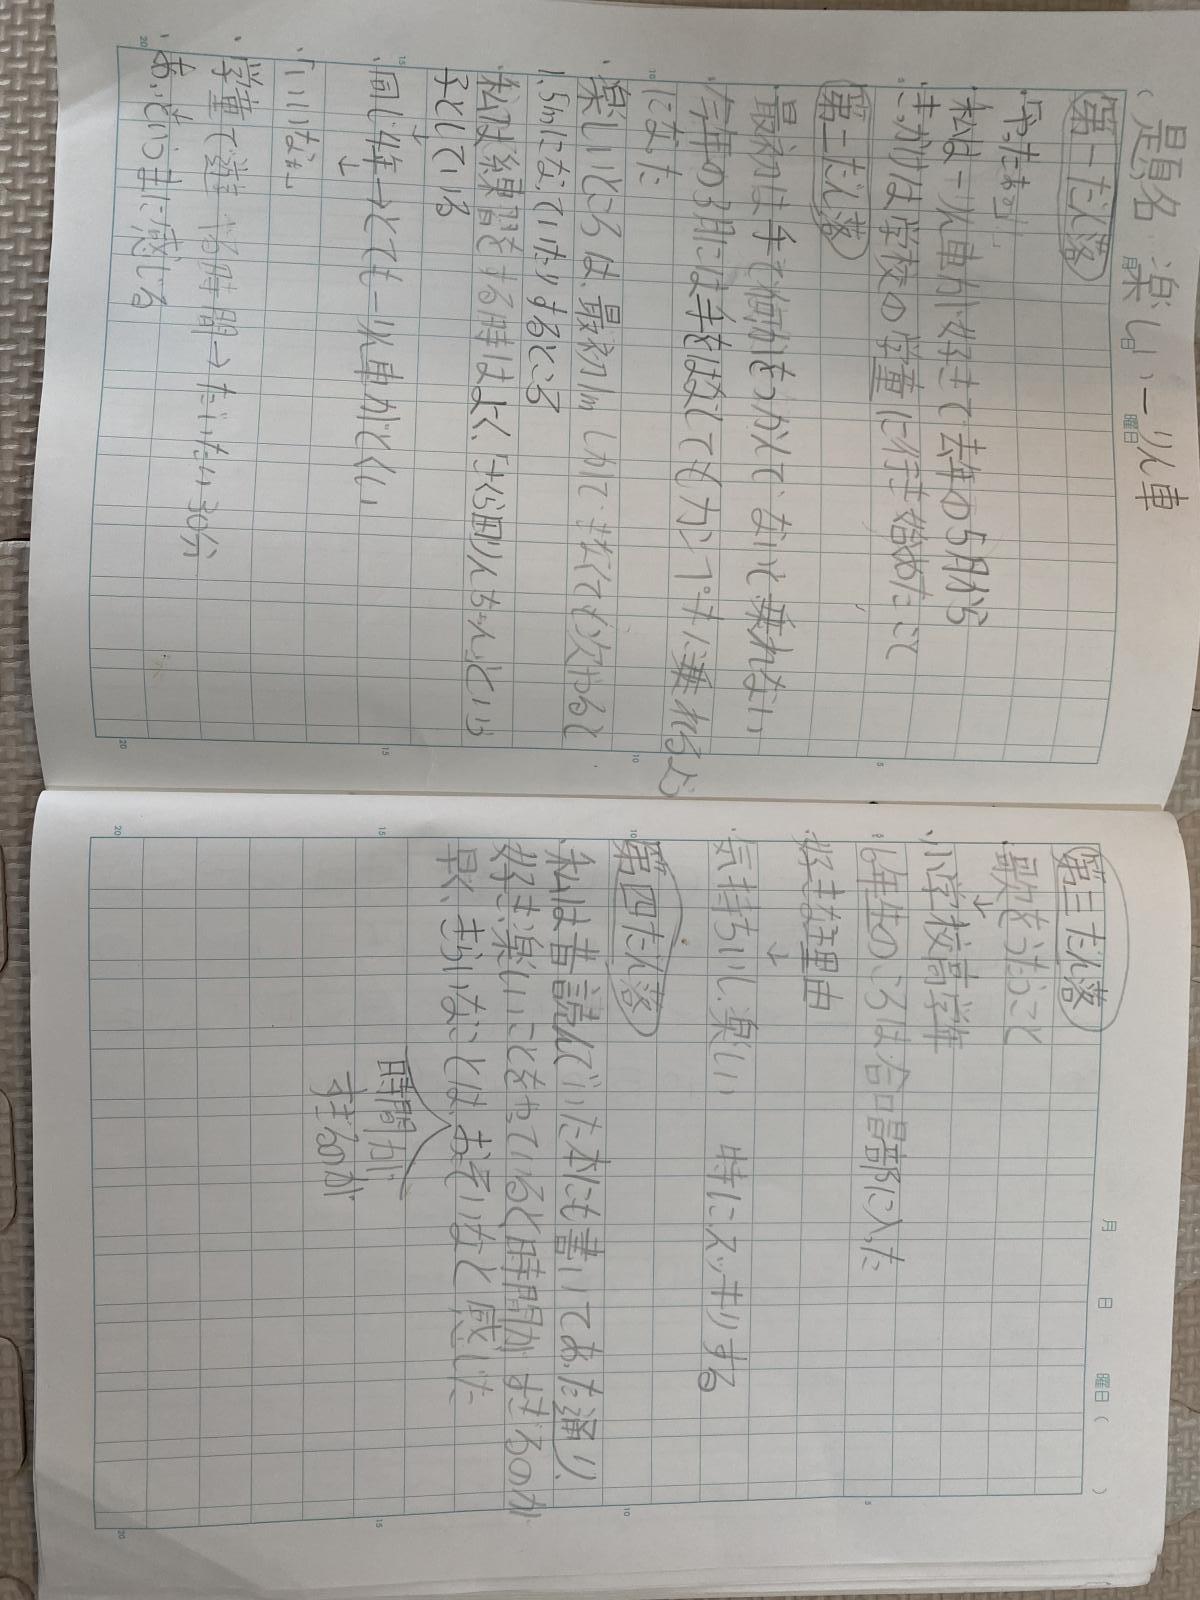 題名 楽しい一りん車
第一だん落
・守ったお話
・私は一りん車が好きで去年の5月から
・きっかけは学校の学童に行き始めたこと
第二だん落
・最初は手で何かをつかんでないと乗れない
・今年の3月には手をはなしても力んぺきに乗れるよう
になった
・楽しいところは、最初1mしかできなくても次やると
1.5mになっていたりするところ
・私が練習をする時はよく「さくら田りんちゃん」という
子としている
↓
・同じ年→とても一りん車がとくい
↓
・「いいな」
・学童で遊べる時間→だいたい30分
↓
・あっという間に感じる
第三だん落
・歌をうたうこと
↓
・小学校高学年
・6年生のころは合唱部に入った
・好きな理由
↓
・気持ちいい、楽しい 特にスッキリする
第四だん落
・私は昔読んでいた本にも書いてあった通り、
好きな楽しいことをやっていると時間がすぎるのが
早く、きらいなことは、おそいなと感じた
時間が
すぎるのが
月 日 曜日( )